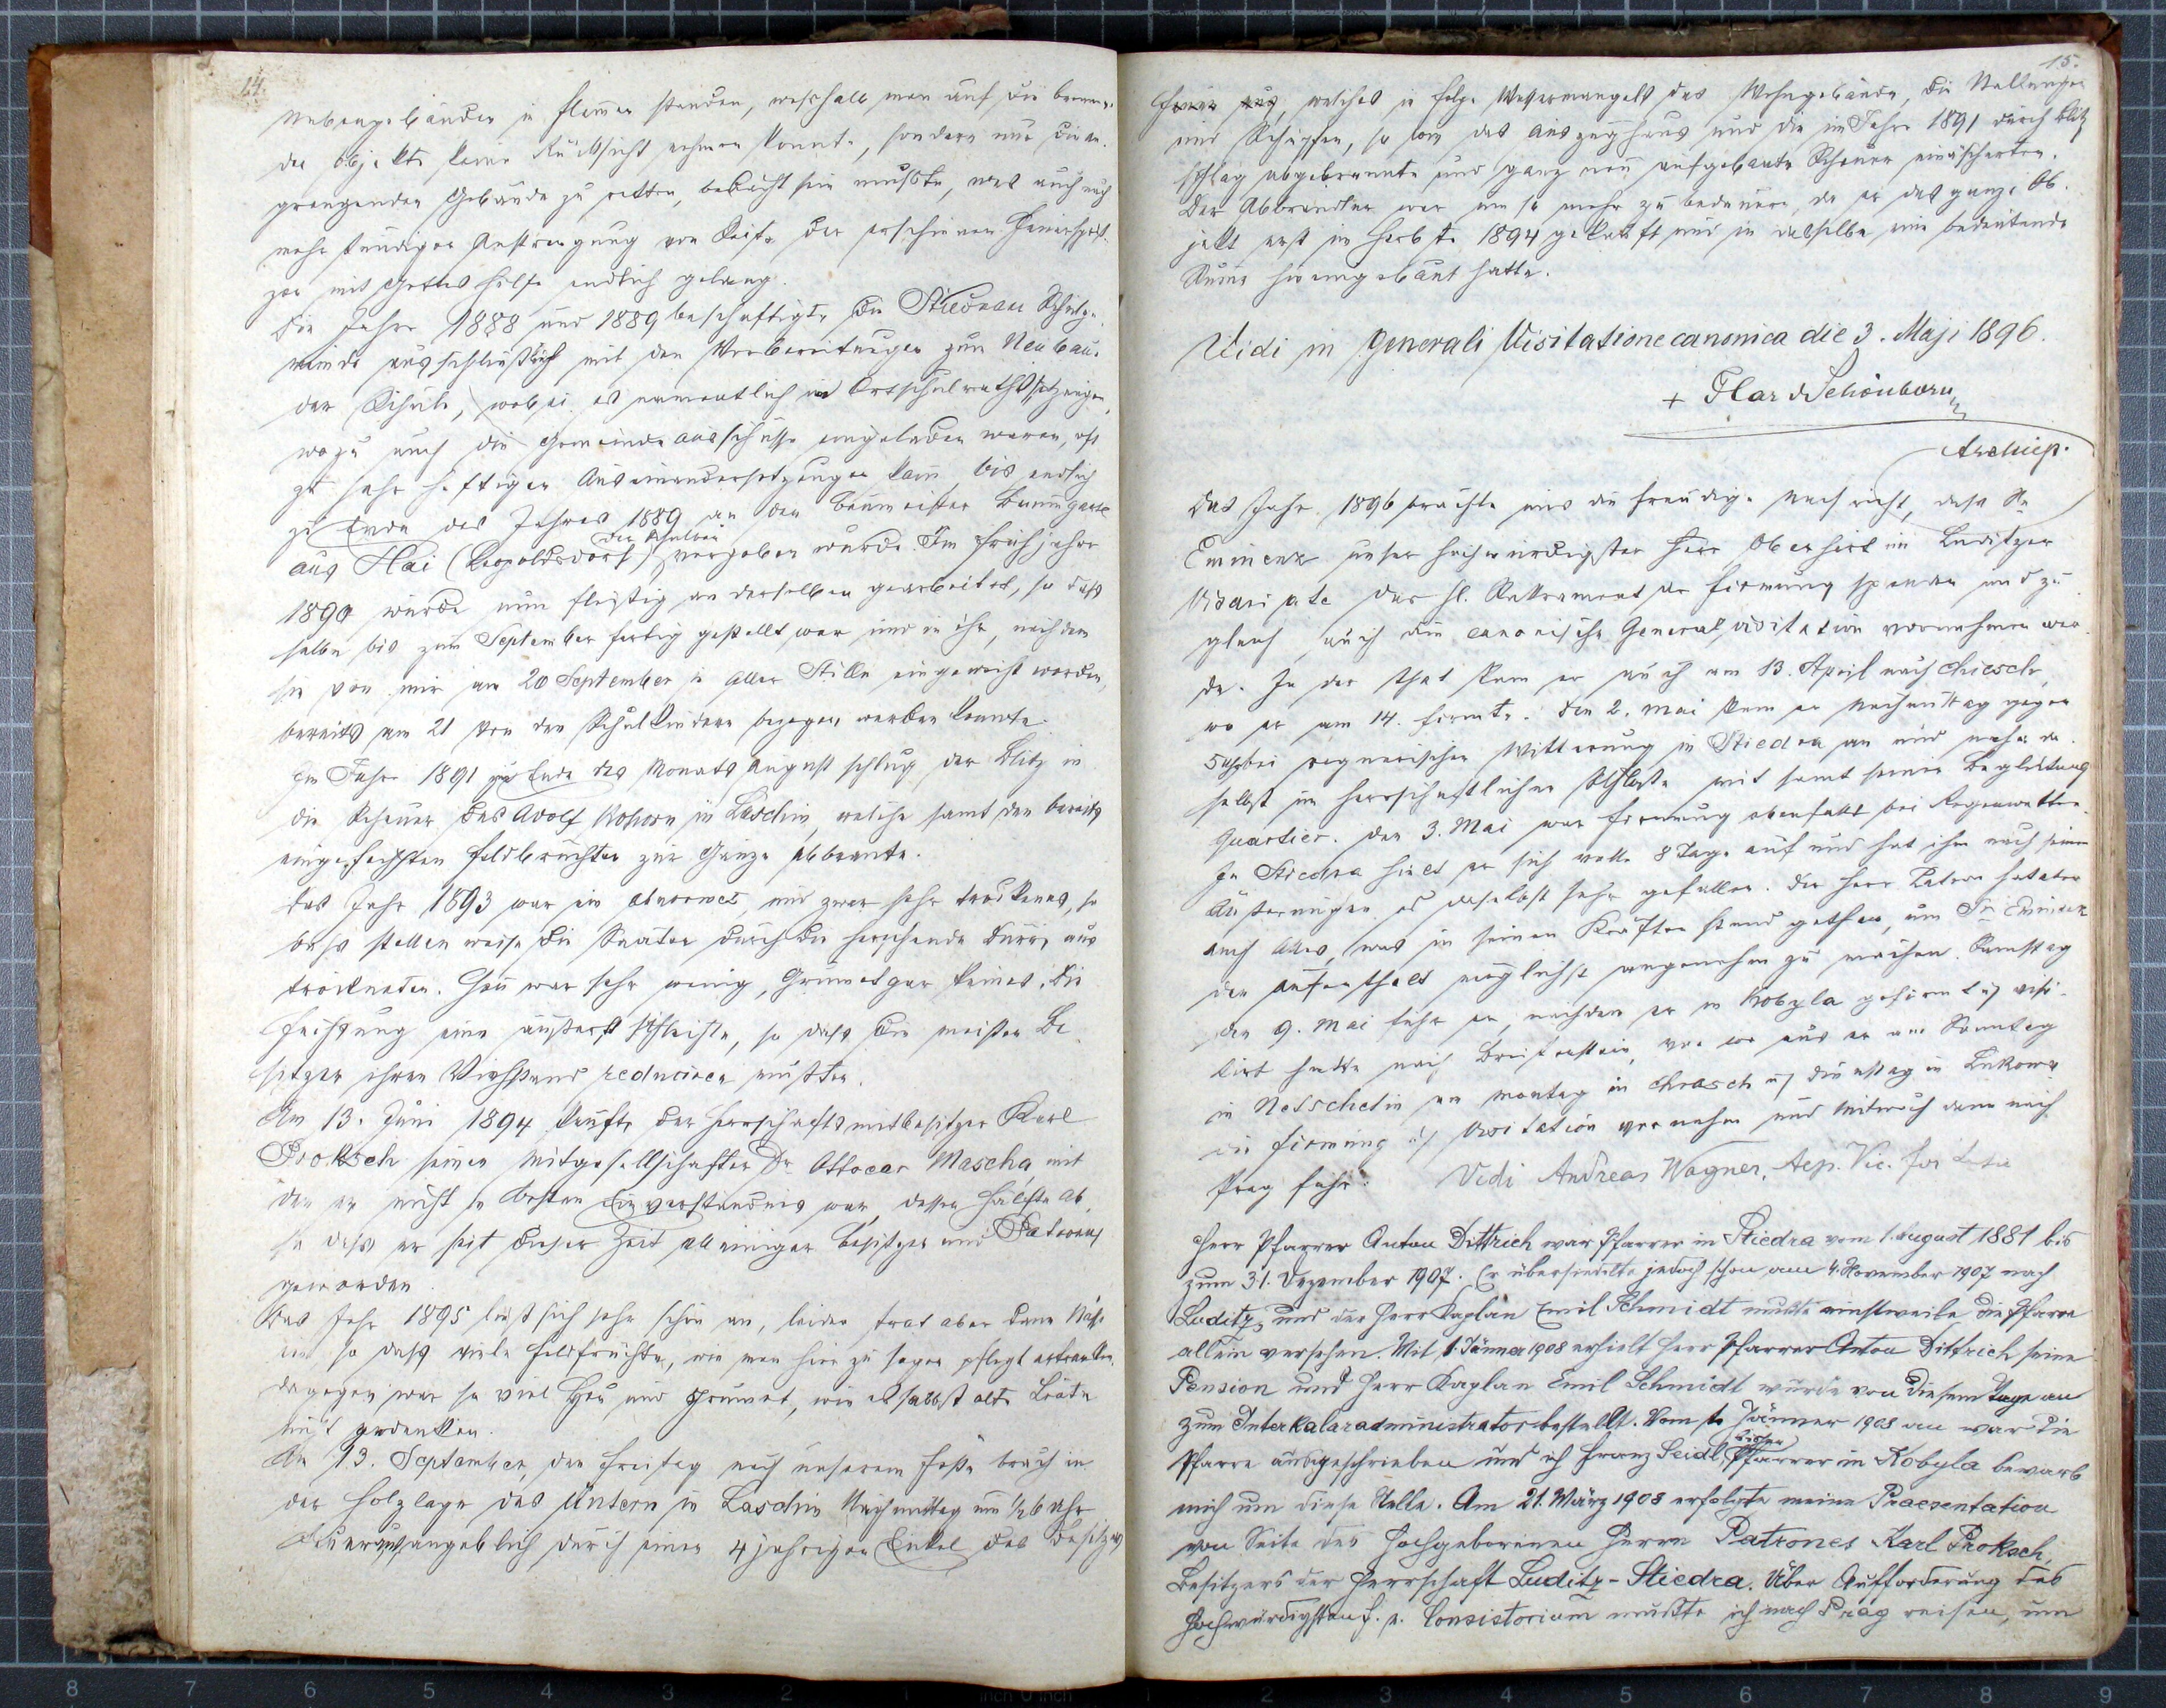 14.
Nebengebäuden in Flammen standen, weßhalb man auf die brennen-
den Objekte keine Rücksicht nehmen konnte, sondern nur die an-
grenzenden Gebäude zu retten, bedacht sein mußte, was auch nach
mehrstündiger Anstrengung von Seite der erschienen Feuersprit-
zen mit Gottes Hilfe endlich gelang.
Die Jahre 1888 und 1889 beschäftigte die Stiedraer Schulge-
meinde ausschließlich mit den Vorbereitungen zum Neubaue
der Schule, wobei es namentlich in Ortsschulrathssitzungen,
wozu auch die Gemeindeausschüsse eingeladen waren, oft
zu sehr heftigen Auseinandersetzungen kam, bis endlich
zu Ende des Jahres 1889 an den Baumeister Baumgartl
aus Hai (Leopoldsdorf) der Schulbau vergeben wurde. Im Frühjahre
1890 wurde nun fleißig an derselben gearbeitet, so daß
selbe bis zum September fertig gestellt war und in ihr, nachdem
sie von mir am 20 September in aller Stille eingeweiht worden,
bereits am 21 von den Schulkindern bezogen werden konnte.
Im Jahre 1891 zu Ende des Monats August schlug der Blitz in
die Scheuer des Adolf Kohorn in Laschin, welche samt den bereits
eingefechsten Feldfrüchten zur Gänze abbrannte.
Das Jahr 1893 war ein abnormes, und zwar sehr trockenes, so
daß stellenweise die Saaten durch die herrschende Dürre aus-
trockneten. Heu war sehr wenig, Grummet gar keines, die
Fechsung eine äußerst schlechte, so daß die meisten Be-
sitzer ihren Viehstand reduciren mußten.
Am 13. Juni 1894 kaufte der Herrschaftsmitbesitzer Karl
Proksch seinen Mitgesellschafter Dr Ottocar Mascha mit
dem er nicht in bestem Einverständnis war, dessen Hälfte ab,
so daß er seit dieser Zeit alleiniger Besitzer und Patronus
geworden.
Das Jahr 1895 ließ sich sehr schön an, leider trat aber dann Nässe
ein so daß viele Feldfrüchte, wie man hier zu sagen pflegt ertranken.
dagegen war so viel Heu und Grummet, wie es selbst alte Leute
nicht gedenken.
Am 13. September, den Freitag nach unserem Feste brach in
der Holzlage des Untern in Laschin Nachmittag um 1/2 6 Uhr
Feuer aus, angeblich durch einen 4 jährigen Enkel des Besitzers
15.
Feuer aus, welches in Folge Wassermangels das Wohngebäude, die Stallungen
und Schupfen, so wie das Auszughaus und die im Jahre 1891 durch Blitz-
schlag abgebrannte und ganz neu aufgebaute Scheuer einäscherten.
Der Abbrändler war um so mehr zu bedauern, da er das ganze Ob-
jekt erst im Herbste 1894 gekauft und in dasselbe eine bedeutende
Summe hineingebaut hatte.
Vidi in generali Visitatione canonica die 3. Maji 1896.
+ Card Schönborn
Archiep.
Das Jahr 1896 brachte uns die freudige Nachricht, daß Se
Eminenz unser hochwürdigster Herr Oberhirt im Luditzer
Vicariate das hl. Sakrament der Firmung spenden und zu-
gleich auch die canonische Generalvisitation vornehmen wer-
de. In der That kam er auch am 13. April nach Chiesch,
wo er am 14. firmte. Den 2. Mai kam er Nachmittag gegen
5 Uhr bei regnerischer Witterung in Stiedra an und nahm da-
selbst im herrschaftlichen Schloße mit samt seiner Begleitung
Quartier. Den 3. Mai war Firmung ebenfalls bei Regenwetter.
In Stiedra hielt er sich volle 8 Tage auf und hat ihm nach seinen
Äußerungen es daselbst sehr gefallen. Der Herr Patron hat aber
auch Alles, was in seinen Kräften stand gethan, um Sr Eminenz
den Aufenthalt möglichst angenehm zu machen. Samstag
den 9. Mai fuhr er, nachdem er in Kobyla gefirmt u visi-
tirt hatte nach Breitenstein, von wo aus er am Sonntag
in Netschetin am Montag in Chrasch u Dienstag in Lukowa
die Firmung u Visitation vornahm und Mitwoch dann nach
Prag fuhr. Vidi Andreas Wagner, Aep. Vic. for
Herr Pfarrer Anton Dittrich war Pfarrer in Stiedra vom 1. August 1881 bis
zum 31. Dezember 1907. Er übersiedelte jedoch schon am 4. November 1907 nach
Luditz, und der Herr Kaplan Emil Schmidt mußte einstweile die Pfarre
allein versehen. Mit 1. Jänner 1908 erhielt Herr Pfarrer Anton Dittrich seine
Pension und Herr Kaplan Emil Schmidt wurde von diesem Tage an
zum Interkalaradministrator bestellt. Vom 1. Jänner 1908 an war die
Pfarre ausgeschrieben und ich Franz Seidl, Pfarrer in Kobyla bewarb
mich um diese Stelle. Am 21. März 1908 erfolgte meine Praesentation
von Seite des hochgeborenen Herrn Patrones Karl Proksch,
Besitzers der Herrschaft Luditz-Stiedra. Über Aufforderung des
hochwürdigsten f. e. Consistorium mußte ich nach Prag reisen, um